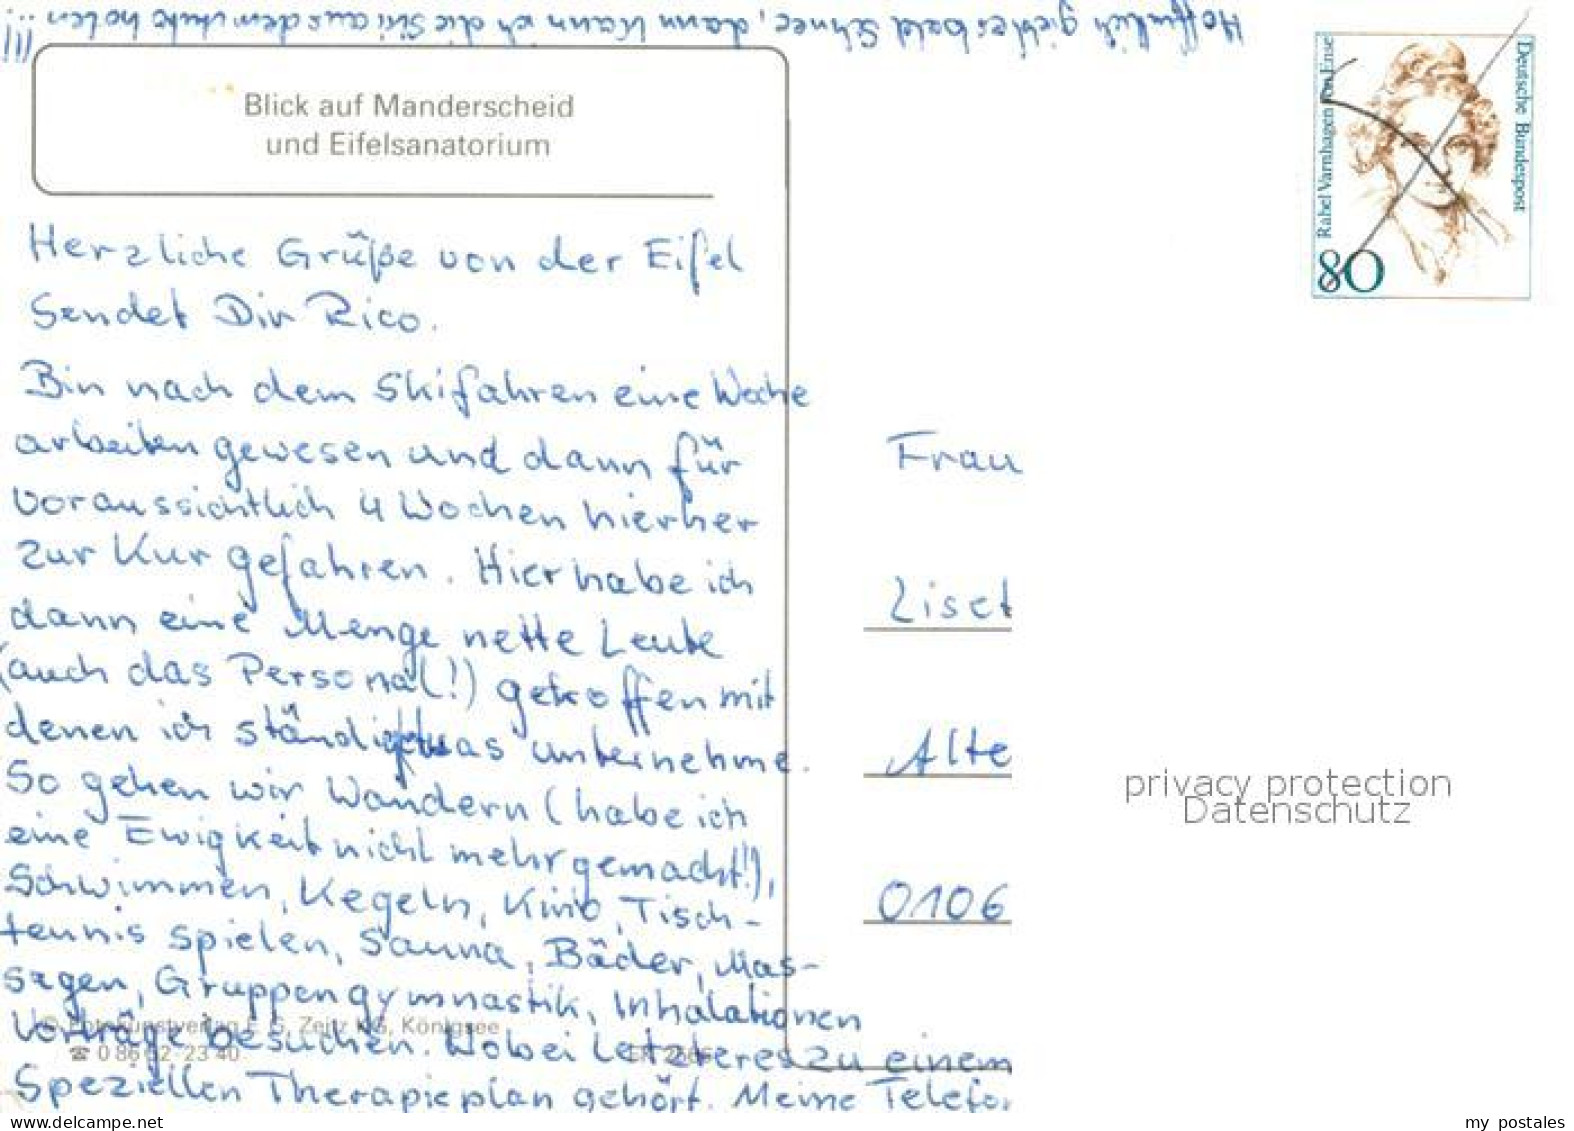 Hoffentlich giebt es bald Schnee, dann kann ich die Ski aus dem Auto holen !!!
Blick auf Manderscheid
und Eifelsanatorium
Herzliche Grüße von der Eifel
Sendet Dir Rico.
Bin nach dem Skifahren eine Woche
arbeiten gewesen und dann für
voraussichtlich 4 Wochen hierher
zur Kur gefahren. Hier habe ich
dann eine Menge nette Leute
(auch das Personal!) getroffen mit
denen ich ständig etwas unternehme.
So gehen wir Wandern (habe ich
eine Ewigkeit nicht mehr gemacht!),
Schwimmen, Kegeln, Kino, Tisch-
tennis spielen, Sauna, Bäder, Mas-
sagen, Gruppengymnastik, Inhalationen
Vorträge besuchen. Wobei letzteres zu einem
Speziellen Therapieplan gehört. Meine Telefo
© Fotokunstverlag E. G. Zeitz KG, Königsee
☎ 0 86 52 - 23 40
Deutsche Bundespost
Rahel Varnhagen von Ense
80
Frau
Liset
Alte
0106
privacy protection
Datenschutz
www.delcampe.net
my postales